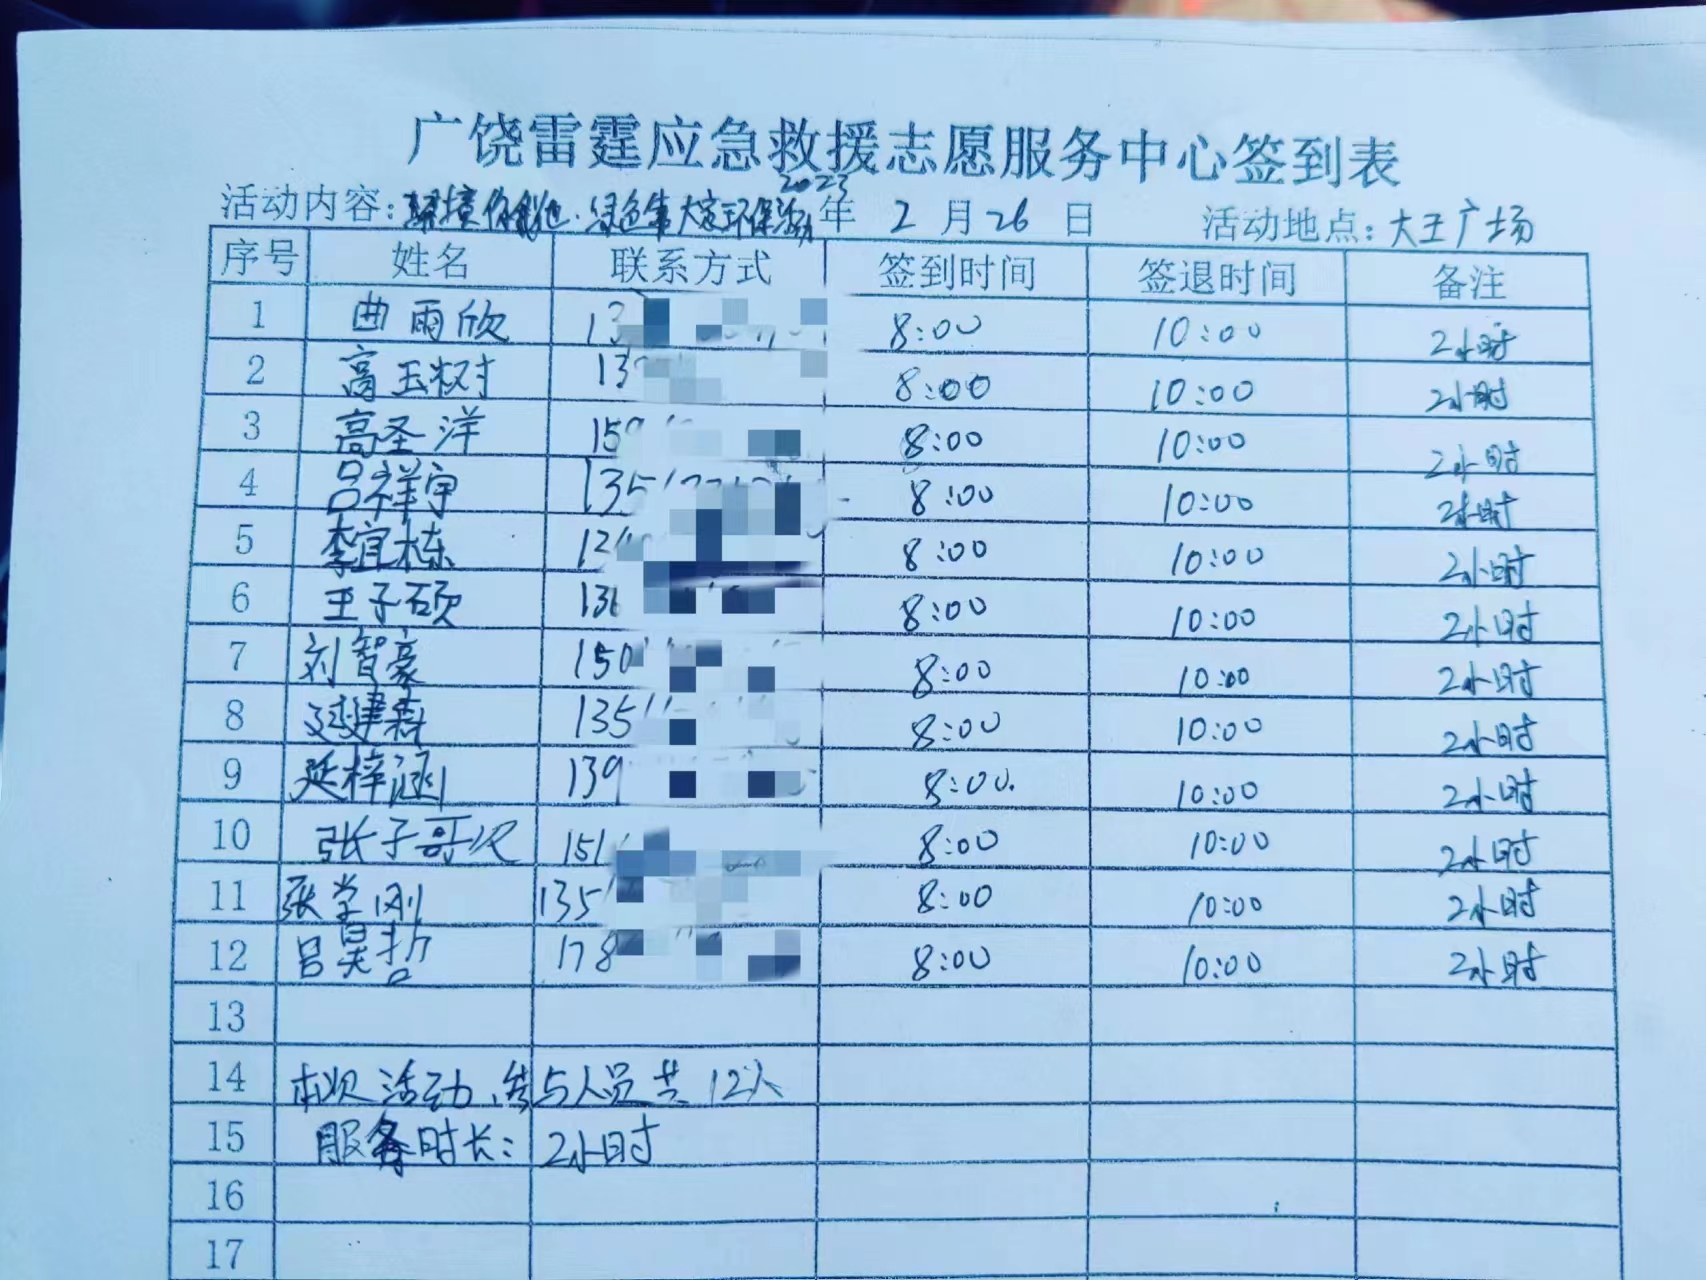 广饶雷霆应急救援志愿服务中心签到表
活动内容: 环境你我他.绿色靠大家环保活动 2023年 2月26日 活动地点:大王广场
序号 姓名 联系方式 签到时间 签退时间 备注
1 曲雨欣 13 8:00 10:00 2小时
2 高玉树 13 8:00 10:00 2小时
3 高圣洋 159 8:00 10:00 2小时
4 吕祥宇 135 8:00 10:00 2小时
5 李宜栋 8:00 10:00 2小时
6 王子硕 136 8:00 10:00 2小时
7 刘智豪 150 8:00 10:00 2小时
8 建森 135 8:00 10:00 2小时
9 延梓涵 139 8:00. 10:00 2小时
10 张子歌 151 8:00 10:00 2小时
11 张学刚 135 8:00 10:00 2小时
12 吕昊哲 178 8:00 10:00 2小时
13
14 本次活动,参与人员共12人
15 服务时长:2小时
16
17